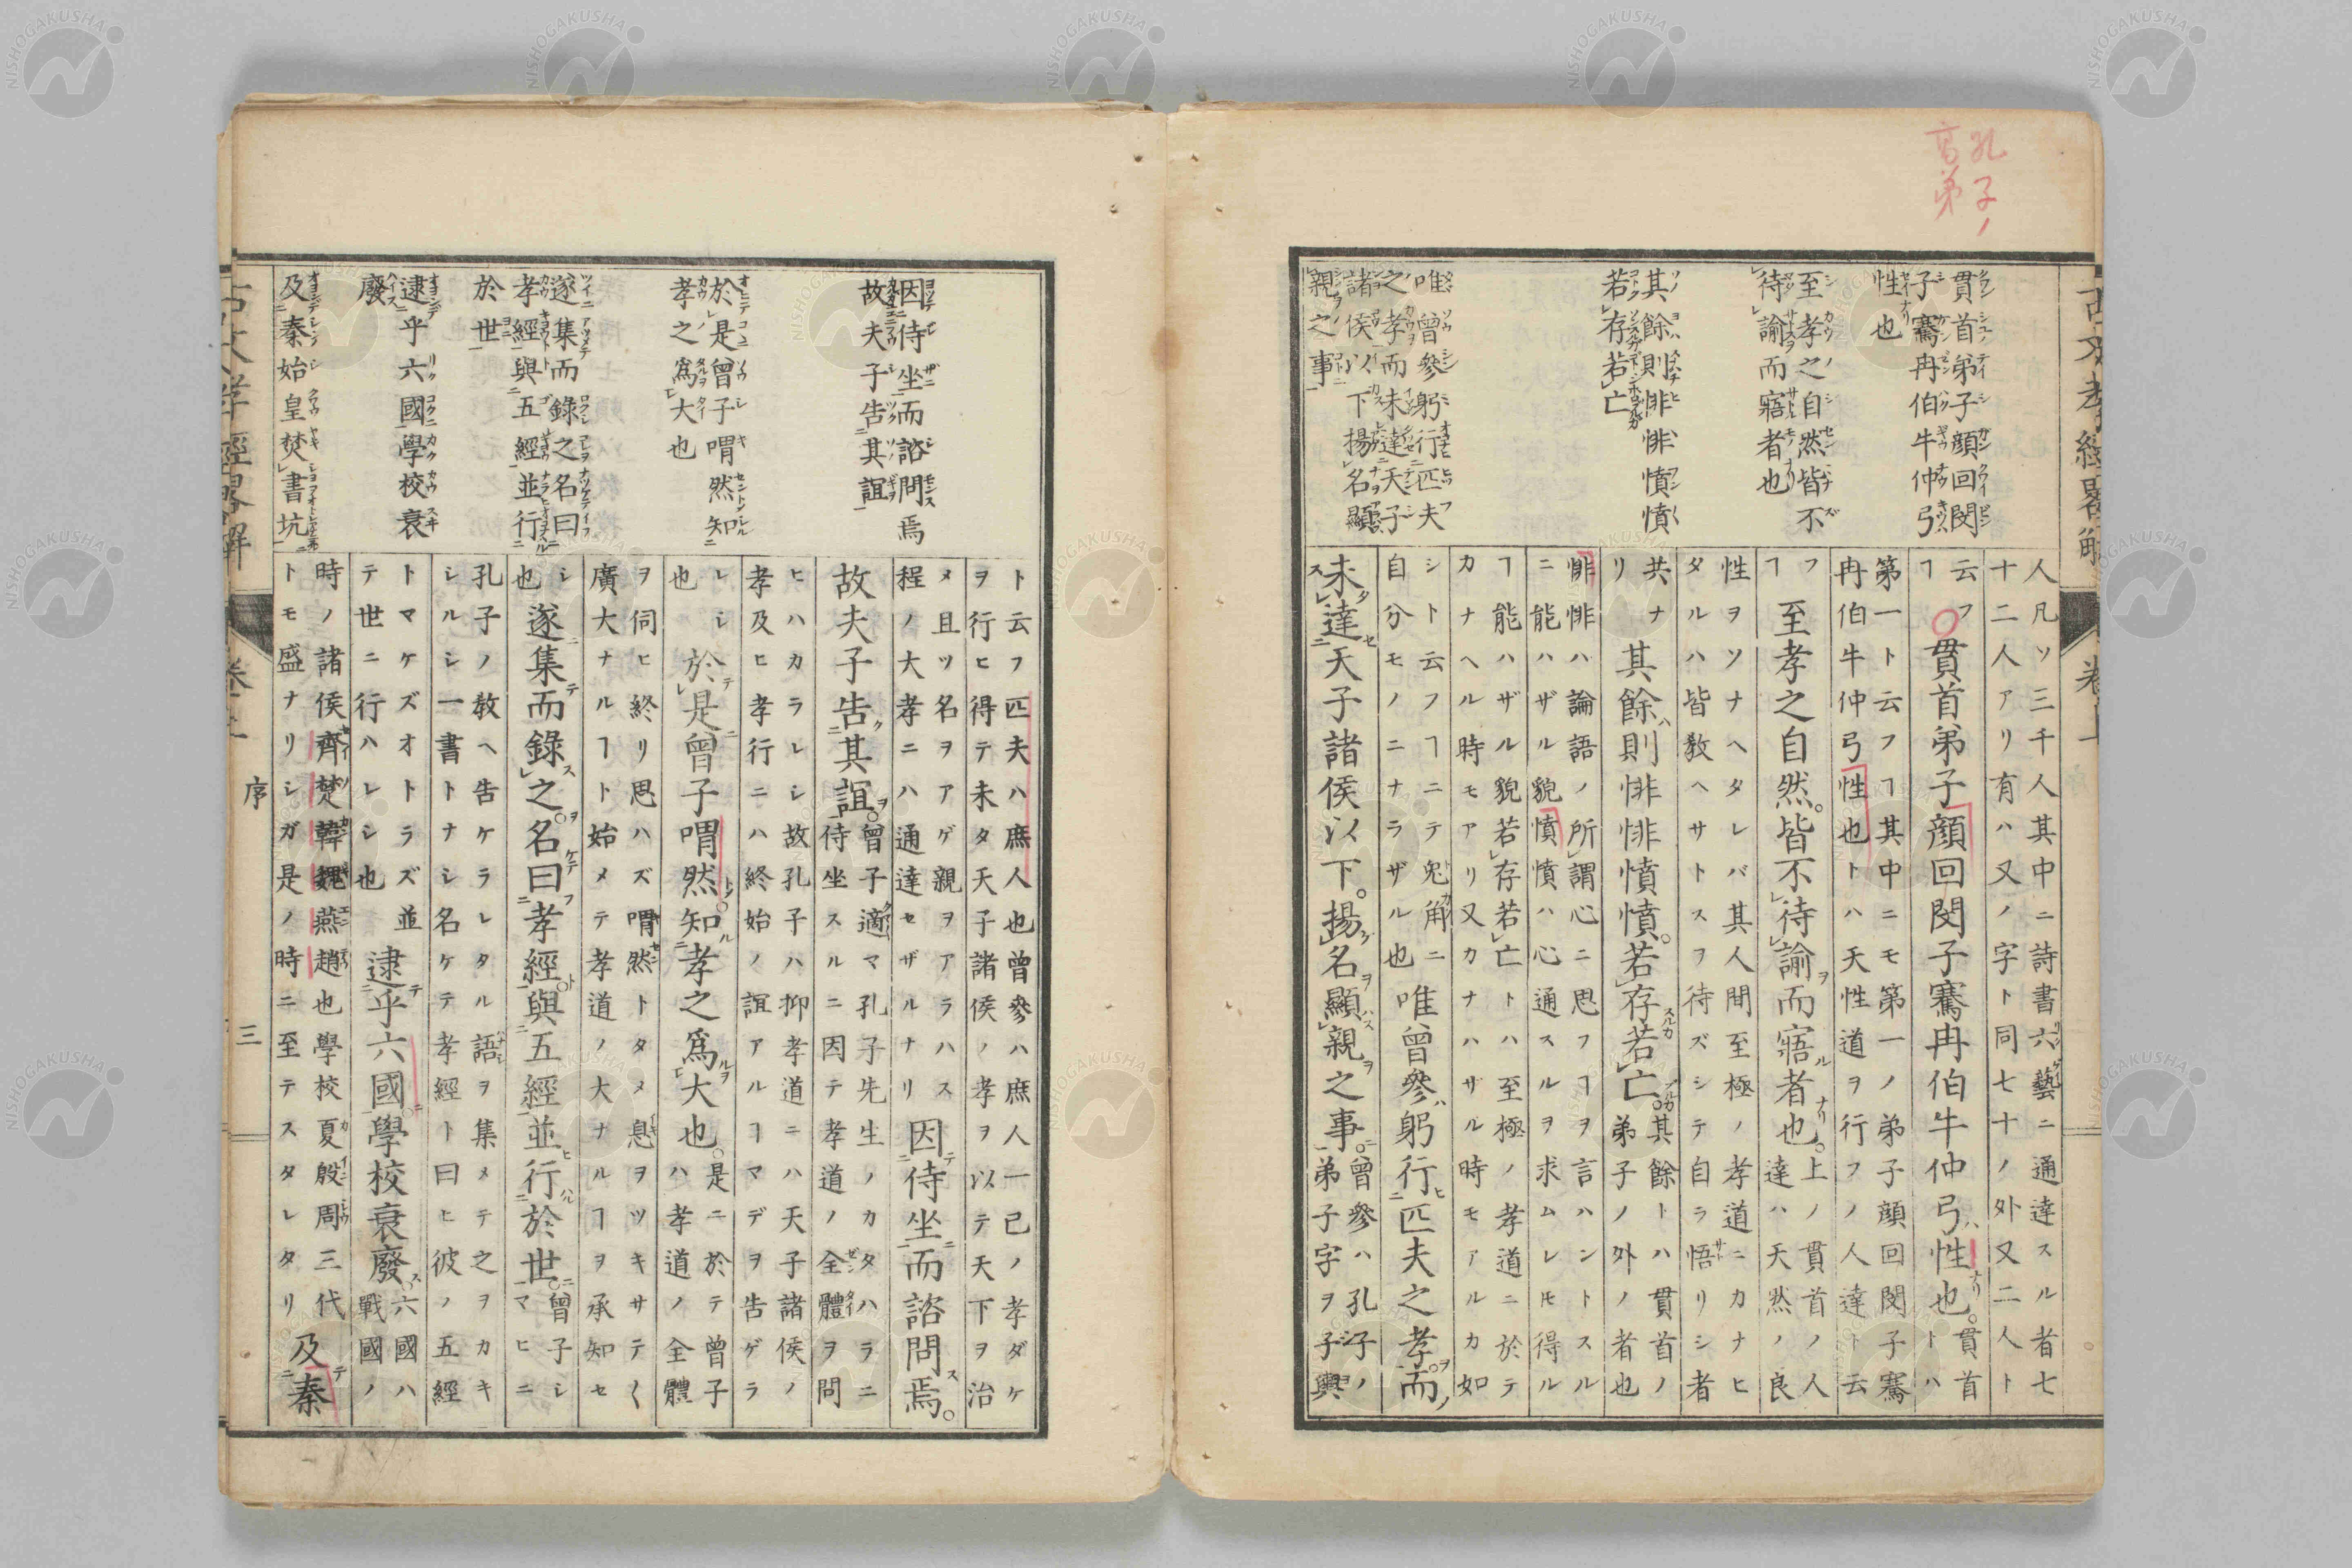 孔子ノ
高弟
古文孝經畧解
巻上
貫首弟子顔回閔
子騫冉伯牛仲弓
性也
至孝之自然皆不
待諭而寤者也
其餘則悱悱憤憤
若存若亡
唯曾參躬行匹夫
之孝而未達天子
諸侯以下揚名顯
親之事
人凡ソ三千人其中ニ詩書六藝ニ通達スル者七
十二人アリ有ハ又ノ字ト同七十ノ外又二人ト
云フヿ貫首弟子顔回閔子騫冉伯牛仲弓性也。貫首トハ
第一ト云フヿ其中ニモ第一ノ弟子顔回閔子騫
冉伯牛仲弓性也トハ天性道ヲ行フノ人達ト云
フヿ至孝之自然。皆不待諭而寤者也。上ノ貫首ノ人達ハ天然ノ良
性ヲソナヘタレバ其人間至極ノ孝道ニカナヒ
タルハ皆教ヘサトスヲ待ズシテ自ラ悟リシ者
共ナリ其餘則悱悱憤憤。若存若亡。其餘トハ貫首ノ弟子ノ外ノ者也
悱悱ハ論語ノ所謂心ニ思フヿヲ言ハントスル
ニ能ハザル貌憤憤ハ心通スルヲ求ムレ𪜈得ル
ヿ能ハザル貌若存若亡トハ至極ノ孝道ニ於テ
カナヘル時モアリ又カナハザル時モアルカ如
シト云フヿニテ兔角ニ自分モノニナラザル也唯曾參躬行匹夫之孝而
未達天子諸侯以下。揚名顯親之事。曾參ハ孔子ノ弟子字ヲ子輿
因侍坐而諮問焉
故夫子告其誼
於是曾子喟然知
孝之爲大也
遂集而錄之名曰
孝經與五經並行
於世
逮乎六國學校衰
廢
及秦始皇焚書坑
ト云フ匹夫ハ庶人也曾參ハ庶人一己ノ孝ダケ
ヲ行ヒ得テ未タ天子諸侯ノ孝ヲ以テ天下ヲ治
メ且ツ名ヲアゲ親ヲアラハス程ノ大孝ニハ通達セザルナリ因侍坐而諮問焉。
故夫子告其誼。曾子適マ孔子先生ノカタハラニ侍坐スルニ因テ孝道ノ全體ヲ問
ヒハカラレシ故孔子ハ抑孝道ニハ天子諸侯ノ
孝及ヒ孝行ニハ終始ノ誼アルヿマデヲ告ゲラ
レシ也於是曾子喟然。知孝之爲大也。是ニ於テ曾子ハ孝道ノ全體
ヲ伺ヒ終リ思ハズ喟然トタメ息ヲツキサテ〱
廣大ナルヿト始メテ孝道ノ大ナルヿヲ承知セ
シ也遂集而錄之。名曰孝經。與五經並行於世。曾子シマヒニ
孔子ノ教ヘ告ケラレタル語ヲ集メテ之ヲカキ
シルシ一書トナシ名ケテ孝經ト曰ヒ彼ノ五經
トマケズオトラズ並テ世ニ行ハレシ也逮乎六國。學校衰廢。六國ハ戰國ノ
時ノ諸侯齊楚韓魏燕趙也學校夏殷周三代
トモ盛ナリシガ是ノ時ニ至テスタレタリ及秦
古文孝經畧解
巻上
序
三
NISHOGAKUSHA